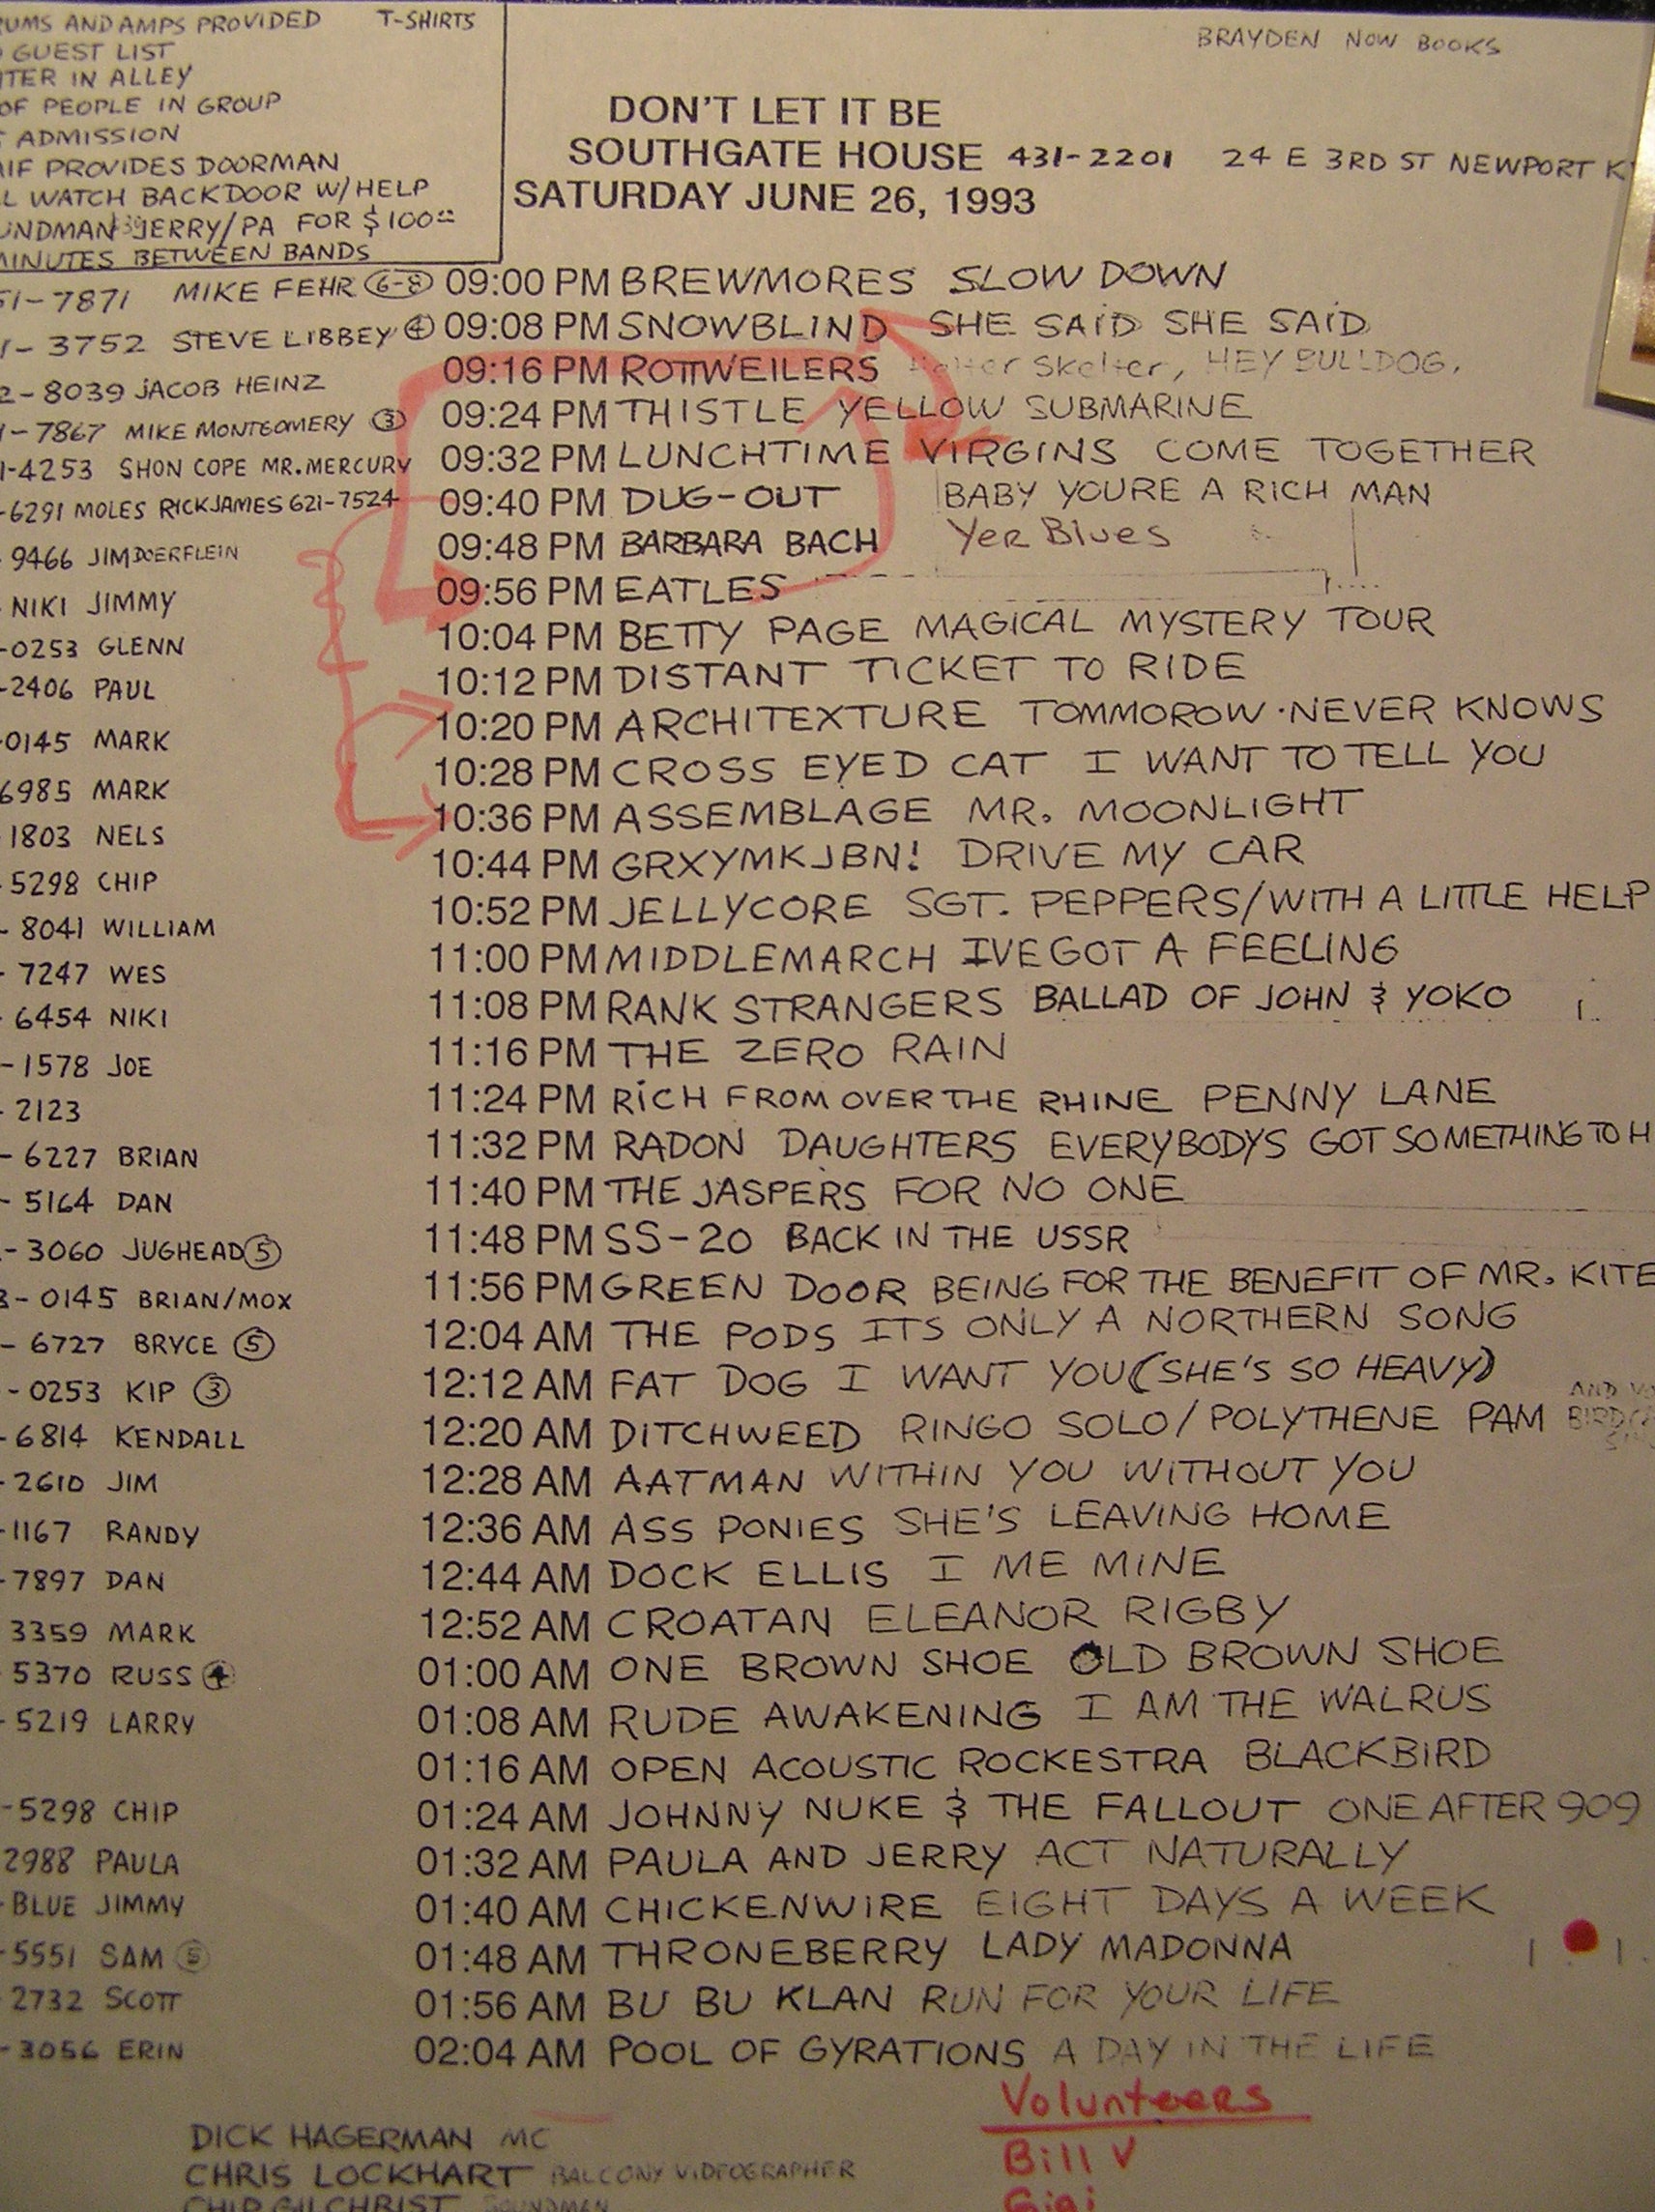 RUMS AND AMPS PROVIDED T-SHIRTS
GUEST LIST
TER IN ALLEY
OF PEOPLE IN GROUP
ADMISSION
AIF PROVIDES DOORMAN
L WATCH BACKDOOR W/HELP
UNDMAN JERRY/PA FOR $100
MINUTES BETWEEN BANDS
BRAYDEN NOW BOOKS
DON'T LET IT BE
SOUTHGATE HOUSE 431-2201 24 E 3RD ST NEWPORT K
SATURDAY JUNE 26, 1993
51-7871 MIKE FEHR 6-8 09:00 PM BREWMORES SLOW DOWN
1-3752 STEVE LIBBEY 4 09:08 PM SNOWBLIND SHE SAID SHE SAID
2-8039 JACOB HEINZ 09:16 PM ROTTWEILERS Helter Skelter, HEY BULLDOG.
1-7867 MIKE MONTGOMERY 3 09:24 PM THISTLE YELLOW SUBMARINE
1-4253 SHON COPE MR.MERCURY 09:32 PM LUNCHTIME VIRGINS COME TOGETHER
-6291 MOLES RICKJAMES 621-7524 09:40 PM DUG-OUT BABY YOURE A RICH MAN
-9466 JIM DOERFLEIN 09:48 PM BARBARA BACH Yer Blues
NIKI JIMMY 09:56 PM EATLES
-0253 GLENN 10:04 PM BETTY PAGE MAGICAL MYSTERY TOUR
-2406 PAUL 10:12 PM DISTANT TICKET TO RIDE
-0145 MARK 10:20 PM ARCHITEXTURE TOMMOROW·NEVER KNOWS
6985 MARK 10:28 PM CROSS EYED CAT I WANT TO TELL YOU
-1803 NELS 10:36 PM ASSEMBLAGE MR. MOONLIGHT
-5298 CHIP 10:44 PM GRXYMKJBN! DRIVE MY CAR
-8041 WILLIAM 10:52 PM JELLYCORE SGT. PEPPERS/WITH A LITTLE HELP
-7247 WES 11:00 PM MIDDLEMARCH IVE GOT A FEELING
-6454 NIKI 11:08 PM RANK STRANGERS BALLAD OF JOHN & YOKO
-1578 JOE 11:16 PM THE ZERO RAIN
-2123 11:24 PM RICH FROM OVER THE RHINE PENNY LANE
-6227 BRIAN 11:32 PM RADON DAUGHTERS EVERYBODYS GOT SOMETHING TO H
-5164 DAN 11:40 PM THE JASPERS FOR NO ONE
-3060 JUGHEAD 5 11:48 PM SS-20 BACK IN THE USSR
3-0145 BRIAN/MOX 11:56 PM GREEN DOOR BEING FOR THE BENEFIT OF MR. KITE
-6727 BRYCE 5 12:04 AM THE PODS ITS ONLY A NORTHERN SONG
-0253 KIP 3 12:12 AM FAT DOG I WANT YOU (SHE'S SO HEAVY)
-6814 KENDALL 12:20 AM DITCHWEED RINGO SOLO/POLYTHENE PAM AND
-2610 JIM 12:28 AM AATMAN WITHIN YOU WITHOUT YOU
-1167 RANDY 12:36 AM ASS PONIES SHE'S LEAVING HOME
-7897 DAN 12:44 AM DOCK ELLIS I ME MINE
3359 MARK 12:52 AM CROATAN ELEANOR RIGBY
-5370 RUSS 4 01:00 AM ONE BROWN SHOE OLD BROWN SHOE
-5219 LARRY 01:08 AM RUDE AWAKENING I AM THE WALRUS
01:16 AM OPEN ACOUSTIC ROCKESTRA BLACKBIRD
-5298 CHIP 01:24 AM JOHNNY NUKE & THE FALLOUT ONE AFTER 909
2988 PAULA 01:32 AM PAULA AND JERRY ACT NATURALLY
-BLUE JIMMY 01:40 AM CHICKENWIRE EIGHT DAYS A WEEK
-5551 SAM 5 01:48 AM THRONEBERRY LADY MADONNA
-2732 SCOTT 01:56 AM BU BU KLAN RUN FOR YOUR LIFE
-3056 ERIN 02:04 AM POOL OF GYRATIONS A DAY IN THE LIFE
DICK HAGERMAN MC
CHRIS LOCKHART BALCONY VIDEOGRAPHER
CHIP GILCHRIST SOUNDMAN
Volunteers
Bill V
Gigi